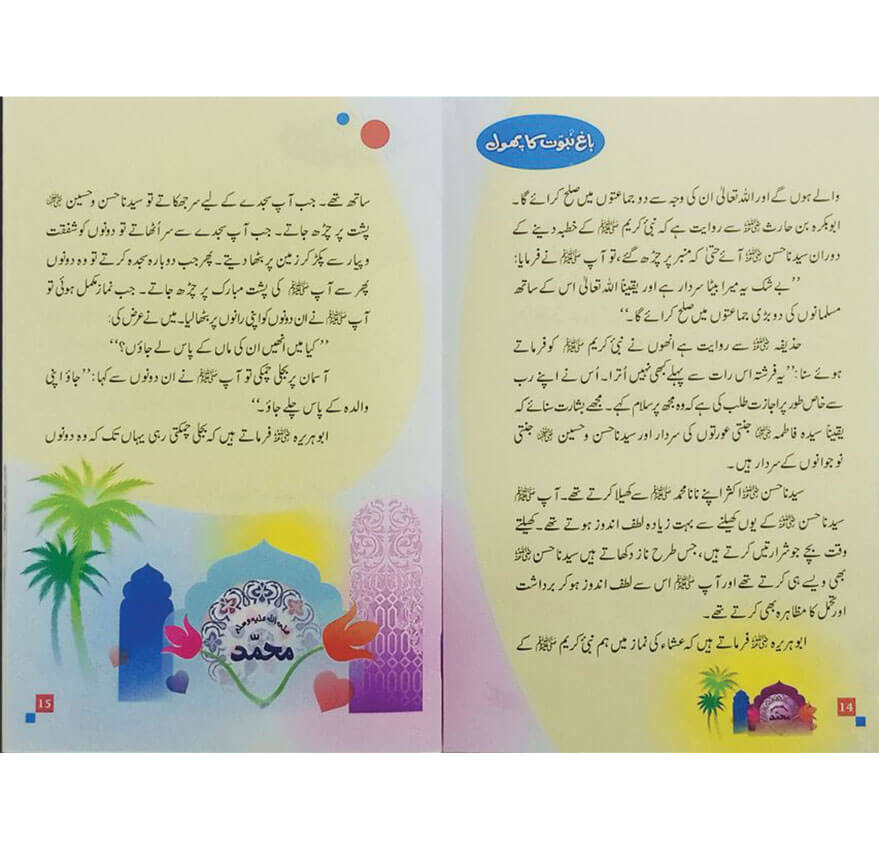 باغِ نبوّت کا پھول
والے ہوں گے اور اللہ تعالیٰ ان کی وجہ سے دو جماعتوں میں صلح کرائے گا۔
ابوبکرہ بن حارث رضی اللہ عنہ سے روایت ہے کہ نبی کریم ﷺ کے خطبہ دینے کے
دوران سیدنا حسن رضی اللہ عنہ آئے حتیٰ کہ منبر پر چڑھ گئے، تو آپ ﷺ نے فرمایا:
’’بے شک یہ میرا بیٹا سردار ہے اور یقیناً اللہ تعالیٰ اس کے ساتھ
مسلمانوں کی دو بڑی جماعتوں میں صلح کرائے گا۔‘‘
حذیفہ رضی اللہ عنہ سے روایت ہے انھوں نے نبی کریم ﷺ کو فرماتے
ہوئے سنا: ’’یہ فرشتہ اس رات سے پہلے کبھی نہیں اُترا۔ اُس نے اپنے رب
سے خاص طور پر اجازت طلب کی ہے کہ وہ مجھ پر سلام کہے۔ مجھے بشارت سنائے کہ
یقیناً سیدہ فاطمہ رضی اللہ عنہا جنتی عورتوں کی سردار اور سیدنا حسن و حسین رضی اللہ عنہما جنتی
نوجوانوں کے سردار ہیں۔
سیدنا حسن رضی اللہ عنہ اکثر اپنے نانا محمد ﷺ سے کھیلا کرتے تھے۔ آپ ﷺ
سیدنا حسن رضی اللہ عنہ کے یوں کھیلنے سے بہت زیادہ لطف اندوز ہوتے تھے۔ کھیلتے
وقت بچے جو شرارتیں کرتے ہیں، جس طرح ناز دکھاتے ہیں سیدنا حسن رضی اللہ عنہ
بھی ویسے ہی کرتے تھے اور آپ ﷺ اس سے لطف اندوز ہو کر برداشت
اور تحمل کا مظاہرہ بھی کرتے تھے۔
ابوہریرہ رضی اللہ عنہ فرماتے ہیں کہ عشاء کی نماز میں ہم نبی کریم ﷺ کے
محمد
14
ساتھ تھے۔ جب آپ سجدے کے لیے سر جھکاتے تو سیدنا حسن و حسین رضی اللہ عنہما
پشت پر چڑھ جاتے۔ جب آپ سجدے سے سر اُٹھاتے تو دونوں کو شفقت
و پیار سے پکڑ کر زمین پر بٹھا دیتے۔ پھر جب دوبارہ سجدہ کرتے تو وہ دونوں
پھر سے آپ ﷺ کی پشت مبارک پر چڑھ جاتے۔ جب نماز مکمل ہوئی تو
آپ ﷺ نے ان دونوں کو اپنی رانوں پر بٹھا لیا۔ میں نے عرض کی:
’’کیا میں انھیں ان کی ماں کے پاس لے جاؤں؟‘‘
آسمان پر بجلی چمکی تو آپ ﷺ نے ان دونوں سے کہا: ’’جاؤ اپنی
والدہ کے پاس چلے جاؤ۔‘‘
ابوہریرہ رضی اللہ عنہ فرماتے ہیں کہ بجلی چمکتی رہی یہاں تک کہ وہ دونوں
صلی اللہ علیہ وسلم
محمد
15